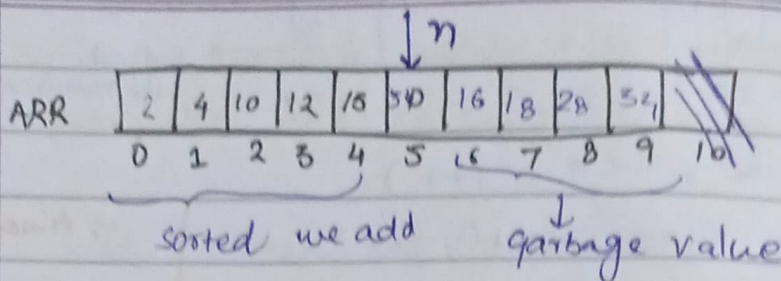 n
ARR 2 4 10 12 15 50 16 18 28 34
0 1 2 3 4 5 6 7 8 9 10
sorted we add garbage value